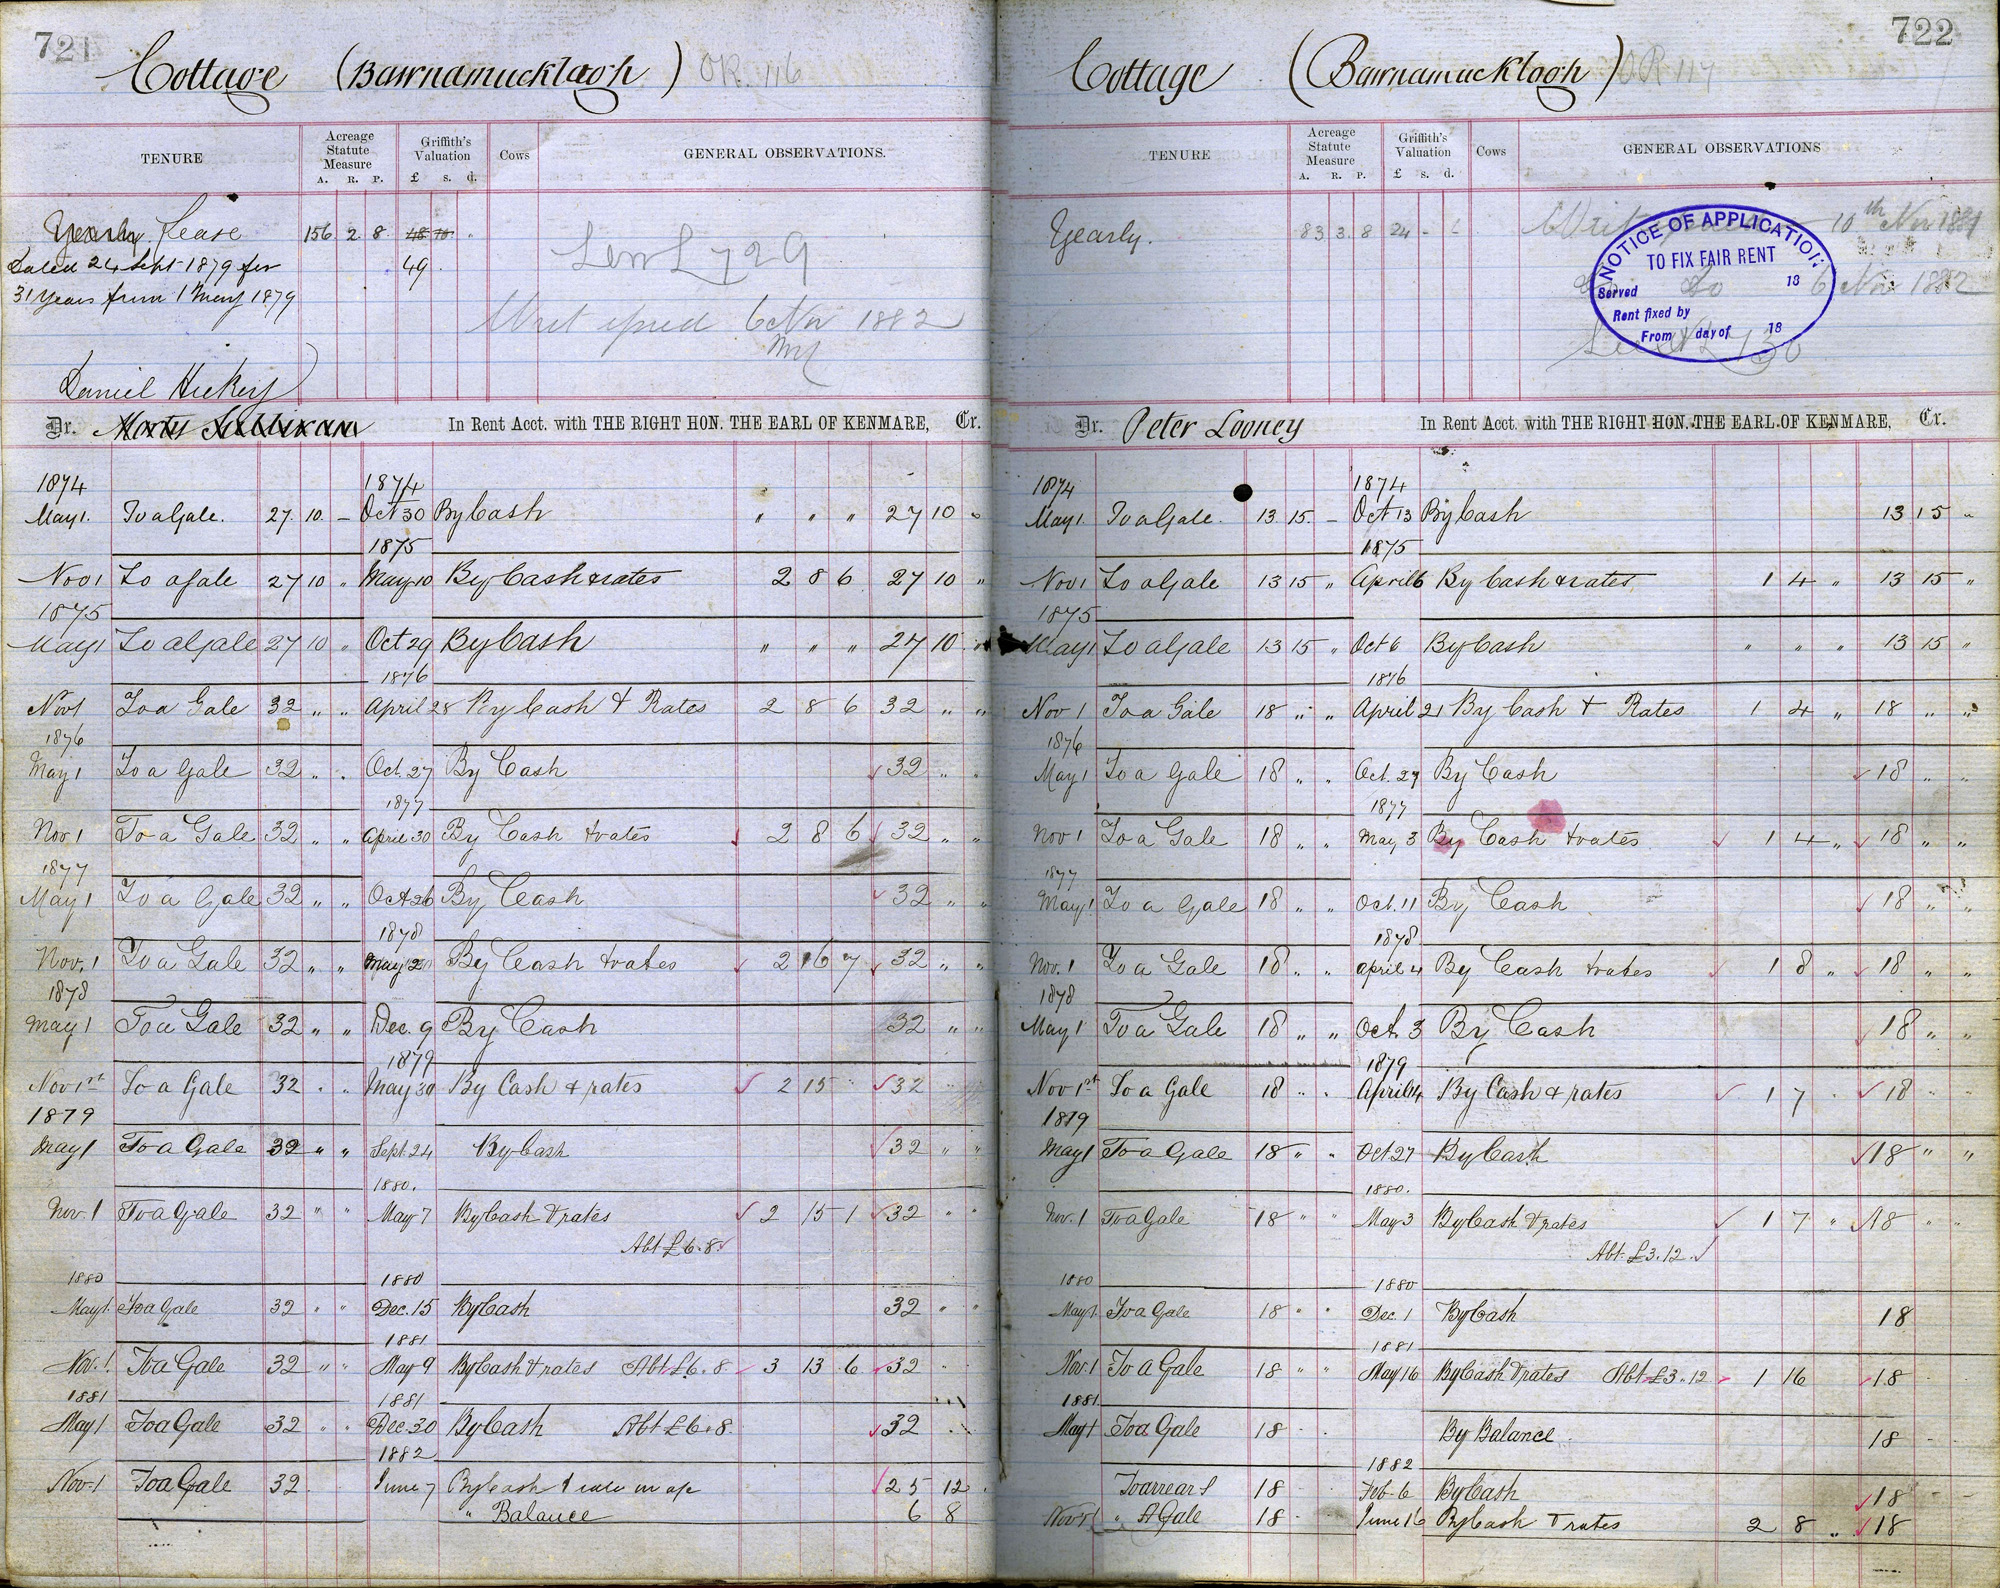 721
Cottage (Barnamucklagh) OR. 116
TENURE Acreage Statute Measure A. R. P. Griffith's Valuation £ s. d. Cows GENERAL OBSERVATIONS.
Yearly Lease 156 2 8 48 10 "
Dated 24 Sept 1879 for 49
31 Years from 1 May 1879
Writ issued 6 Nov 1882
Daniel Hickey
Dr. Morty Sullivan In Rent Acct. with THE RIGHT HON. THE EARL OF KENMARE, Cr.
1874 1874
May 1. To a Gale. 27. 10. – Oct 30 By Cash " " " 27 10 "
1875
Nov 1 To a Gale 27 10 " May 10 By Cash & rates 2 8 6 27 10 "
1875
May 1 To a Gale 27 10 " Oct 29 By Cash " " " 27 10 "
1876
Nov 1 To a Gale 32 " " April 28 By Cash & Rates 2 8 6 32 " "
1876
May 1 To a Gale 32 " " Oct. 27 By Cash 32 " "
1877
Nov 1 To a Gale 32 " " April 30 By Cash & rates 2 8 6 32 " "
1877
May 1 To a Gale 32 " " Oct 26 By Cash 32 " "
1878
Nov. 1 To a Gale 32 " " May By Cash & rates 2 16 7 32 " "
1878
May 1 To a Gale 32 " " Dec. 9 By Cash 32 " "
1879
Nov 1st To a Gale 32 " " May 30 By Cash & rates 2 15 " 32 " "
1879
May 1 To a Gale 32 " " Sept. 24 By Cash 32 " "
1880.
Nov. 1 To a Gale 32 " " May 7 By Cash & rates 2 15 1 32 " "
Abt £6.8.
1880 1880
May 1. To a Gale 32 " " Dec. 15 By Cash 32 " "
1881
Nov. 1. To a Gale 32 " " May 9 By Cash & rates Abt £6.8 3 13 6 32 " "
1881 1881
May 1 To a Gale 32 " " Dec. 30 By Cash Abt £6.8. 32
1882
Nov. 1 To a Gale 32 June 7 By Cash & 25 12
" Balance 6 8
722
Cottage (Barnamucklogh) OR 117
TENURE Acreage Statute Measure A. R. P. Griffith's Valuation £ s. d. Cows GENERAL OBSERVATIONS
Yearly. 83 3 8 24 - - Writ 10th Nov 1881
Do 6 Nov 1882
NOTICE OF APPLICATION
TO FIX FAIR RENT
Served 18
Rent fixed by
From day of 18
Dr. Peter Looney In Rent Acct. with THE RIGHT HON. THE EARL OF KENMARE, Cr.
1874 1874
May 1. To a Gale. 13. 15. – Oct 13 By Cash 13 15 "
1875
Nov 1 To a Gale 13 15 " April 6 By Cash & rates 1 4 " 13 15 "
1875
May 1 To a Gale 13 15 " Oct 6 By Cash " " " 13 15 "
1876
Nov 1 To a Gale 18 " " April 21 By Cash & Rates 1 4 " 18 " "
1876
May 1 To a Gale 18 " " Oct. 27 By Cash 18 " "
1877
Nov 1 To a Gale 18 " " May 3 By Cash & rates 1 4 " 18 " "
1877
May 1 To a Gale 18 " " Oct. 11 By Cash 18 " "
1878
Nov. 1 To a Gale 18 " " April 4 By Cash & rates 1 8 " 18 " "
1878
May 1 To a Gale 18 " " Oct. 3 By Cash 18 " "
1879
Nov 1st To a Gale 18 " " April 14 By Cash & rates 1 7 18
1879
May 1 To a Gale 18 " " Oct 27 By Cash 18 " "
1880.
Nov. 1 To a Gale 18 " " May 3 By Cash & rates 1 7 " 18
Abt. £3.12.
1880 1880
May 1. To a Gale 18 " " Dec. 1 By Cash 18
1881
Nov. 1 To a Gale 18 " " May 16 By Cash & rates Abt £3.12 1 16 18
1881
May 1 To a Gale 18 By Balance 18
1882
To arrears 18 Feb. 6 By Cash 18
Nov 1 " A Gale 18 June 16 By Cash & rates 2 8 " 18